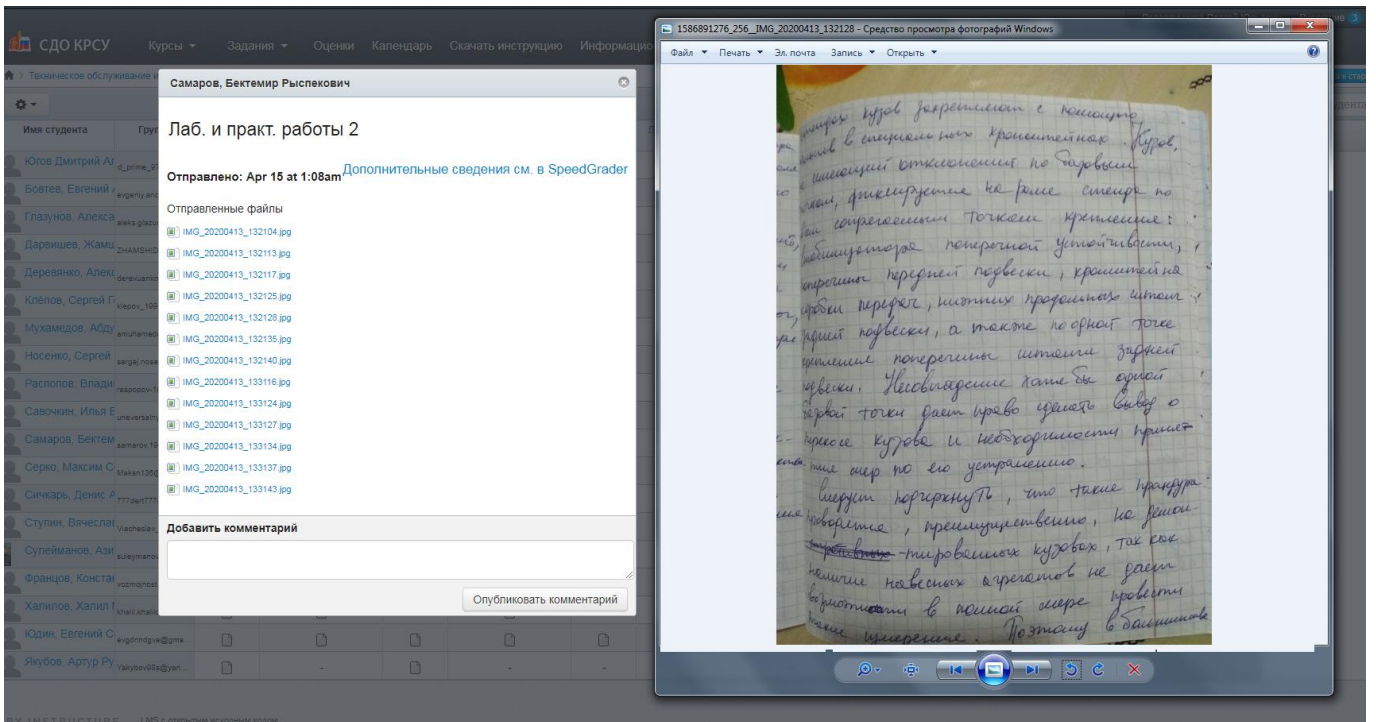 СДО КРСУ
Курсы
Задания
Оценки
Календарь
Скачать инструкцию
Техническое обслуживание и
Имя студента
Югов Дмитрий Ал
Бовтев, Евгений
Глазунов, Алекса
Дарвишев, Жамш
Деревянко, Алекс
Клёпов, Сергей Г
Мухамедов, Абду
Носенко, Сергей
Распопов, Влади
Савочкин, Илья Е
Самаров, Бектем
Серко, Максим С
Сичкарь, Денис А
Ступин, Вячеслав
Сулейманов, Ази
Францов, Констан
Халилов, Халил
Юдин, Евгений С
Якубов, Артур Ру
Самаров, Бектемир Рыспекович
Лаб. и практ. работы 2
Дополнительные сведения см. в SpeedGrader
Отправлено: Apr 15 at 1:08am
Отправленные файлы
IMG_20200413_132104.jpg
IMG_20200413_132113.jpg
IMG_20200413_132117.jpg
IMG_20200413_132125.jpg
IMG_20200413_132128.jpg
IMG_20200413_132135.jpg
IMG_20200413_132140.jpg
IMG_20200413_133116.jpg
IMG_20200413_133124.jpg
IMG_20200413_133127.jpg
IMG_20200413_133134.jpg
IMG_20200413_133137.jpg
IMG_20200413_133143.jpg
Добавить комментарий
Опубликовать комментарий
1586891276_256__IMG_20200413_132128 - Средство просмотра фотографий Windows
Файл Печать Эл. почта Запись Открыть
кузов закрепляют с помощью
в специальных кронштейнах. Кузов,
имеющий отклонения по базовым
фиксируется на раме стенда по
сопрягаемым точкам крепления:
поперечной устойчивости,
поперечины передней подвески, кронштейна
коробки передач, нижних продольных штанг
задней подвески, а также по одной точке
крепления поперечины штанги задней
подвески. Несовпадение хотя бы одной
базовой точки дает право сделать вывод о
перекосе кузова и необходимости принят
мер по его устранению.
Следует подчеркнуть, что такие
преимущественно, на демон-
-тированных кузовах, так как
наличие навесных агрегатов не дает
в полной мере провести
такие измерения. Поэтому в большинстве